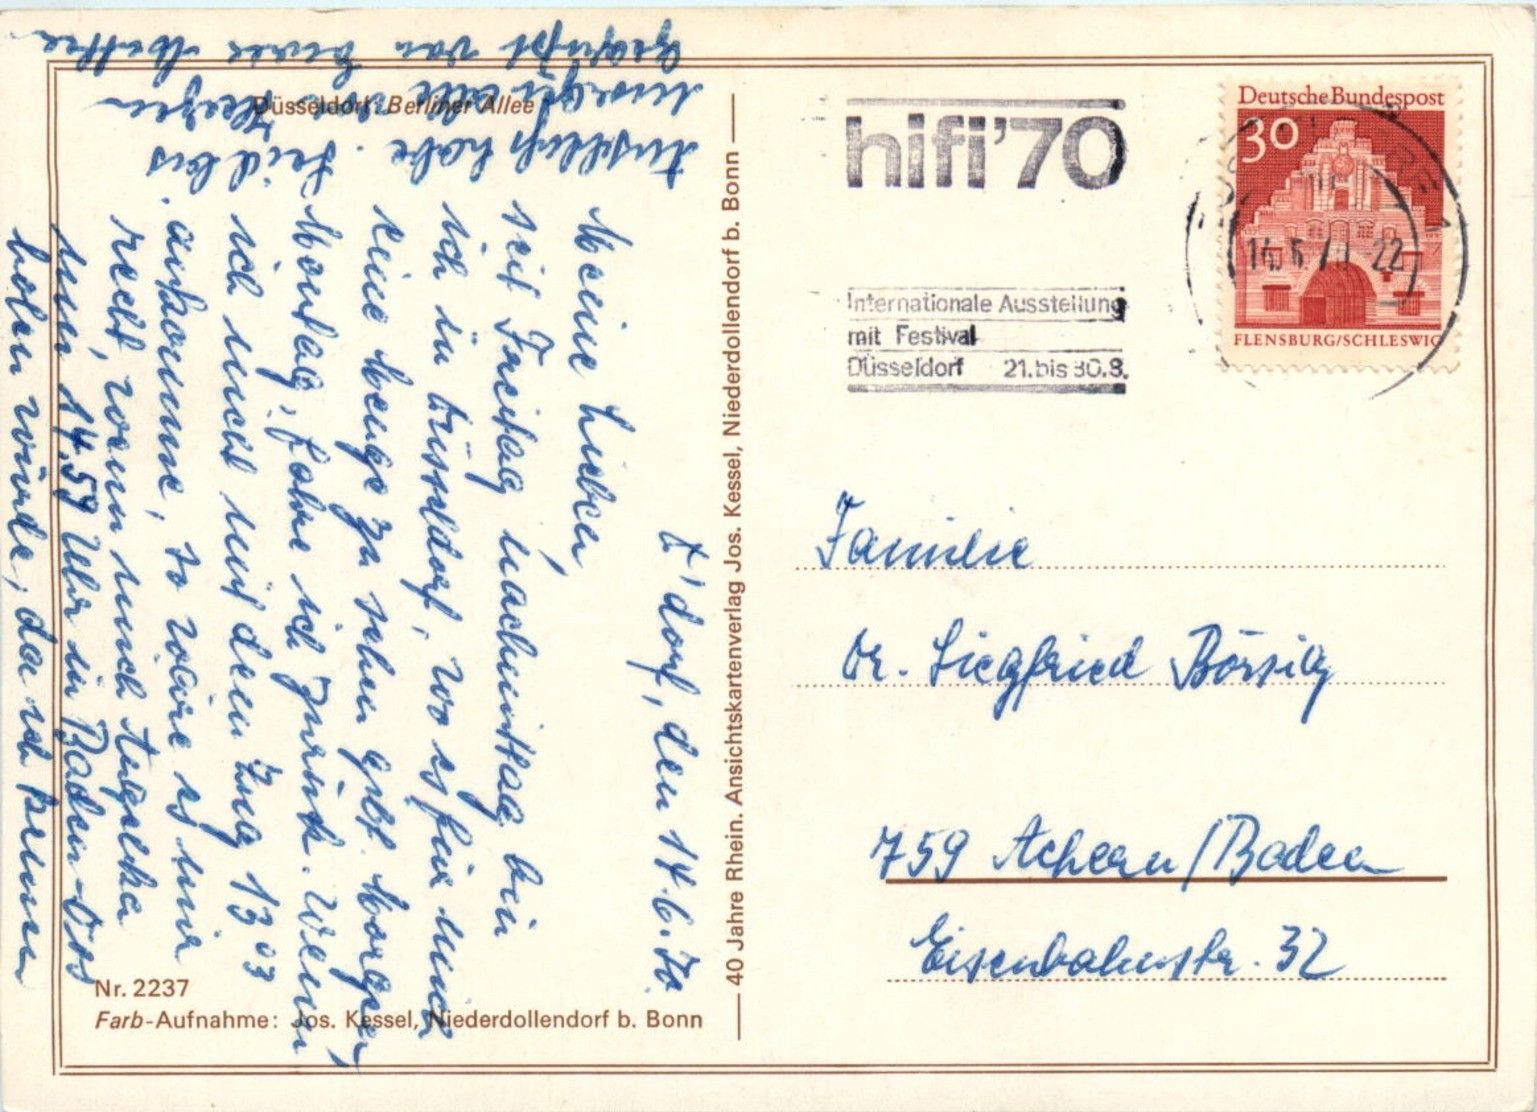 Düsseldorf: Berliner Allee
D'dorf, den 14.6.70.
Meine Lieben,
seit Freitag nachmittag bin
ich in Düsseldorf, wo es für mich
eine Menge zu sehen gibt. Morgen,
Montag, fahre ich zurück. Wenn
ich nicht mit dem Zug 13.03
ankomme, so wäre es mir
recht, wenn mich Angelika
um 14.59 Uhr in Baden-Oos
holen würde, da ich keinen
Anschluß habe. Seid bis
morgen alle von Herzen
gegrüßt von Eurer Mutter
Nr. 2237
Farb-Aufnahme: Jos. Kessel, Niederdollendorf b. Bonn
40 Jahre Rhein. Ansichtskartenverlag Jos. Kessel, Niederdollendorf b. Bonn
hifi'70
Internationale Ausstellung
mit Festival
Düsseldorf 21. bis 30.8.
Deutsche Bundespost
30
FLENSBURG/SCHLESWIG
Familie
Dr. Siegfried Börsig
759 Achern/Baden
Eisenbahnstr. 32